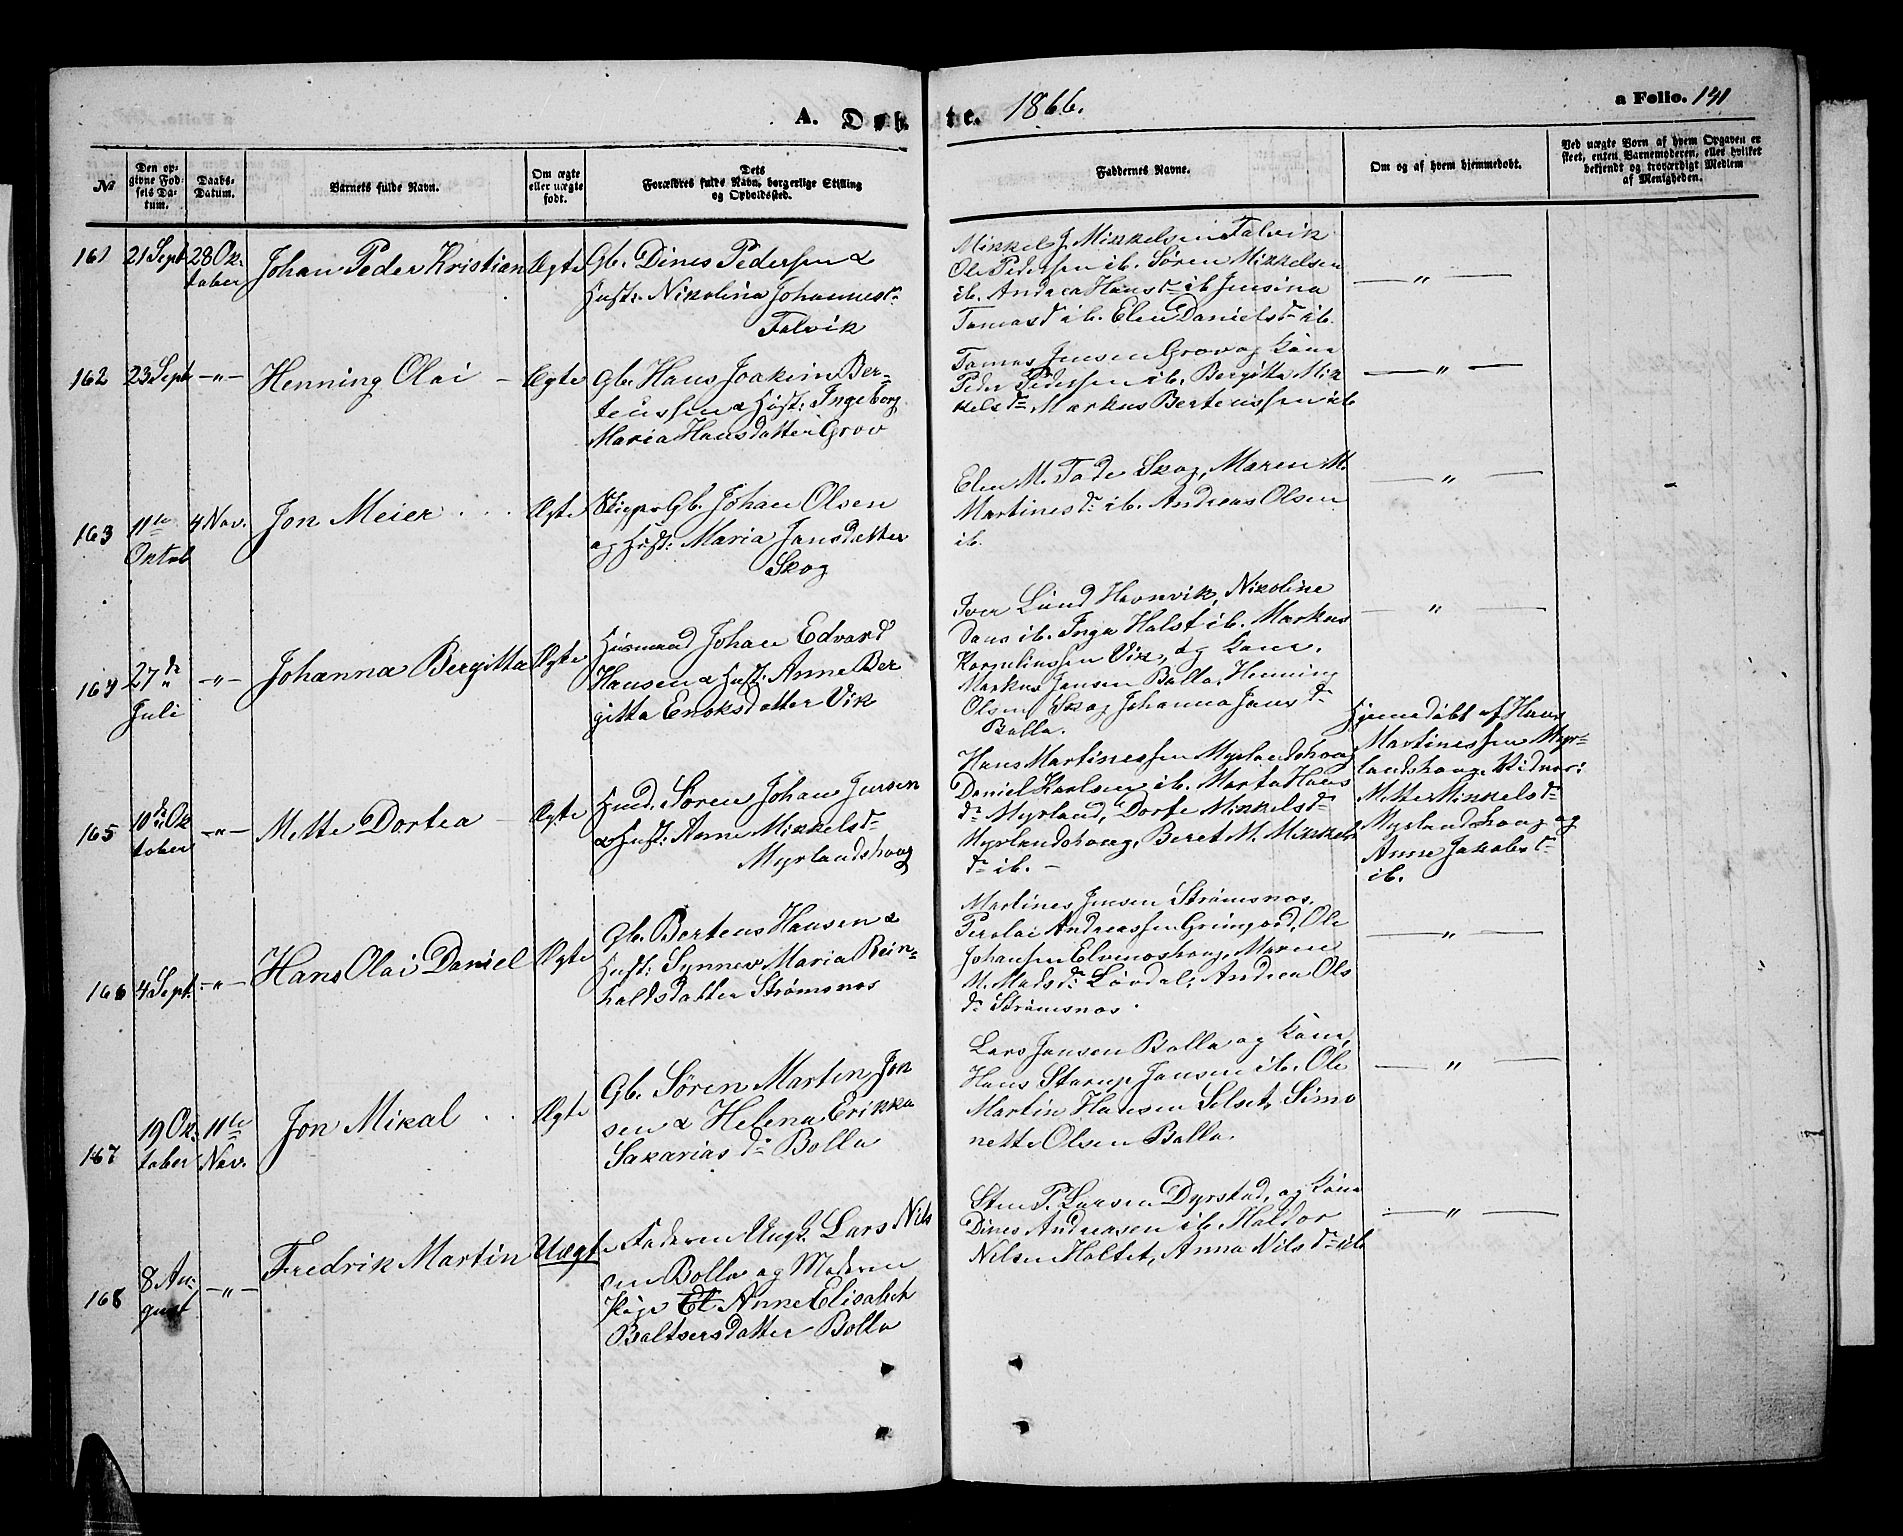 A. Døb te. 1866.
a Folio. 141
№
Den op-
givne Fød-
sels Da-
tum.
Daabs-
Datum.
Barnets fulde Navn.
Om ægte
eller uægte
født.
Dets
Forældres fulde Navn, borgerlige Stilling
og Opholdssted.
Faddernes Navne.
Om og af hvem hjemmedøbt.
Ved uægte Børn af hvem Opgaven er
skeet, enten Barnemoderen, eller hvilket
bekjendt og troværdigt Medlem
af Menigheden.
161
21 Sept
28 Ok-
tober
Johan Peder Kristian
Ægte
Gb. Dines Pedersen &
Hust: Nikolina Johannesd.
Falvik
Mikkel J Mikkelsen Falvik
Ole Pedersen ib. Sören Mikkelsen
ib. Andrea Hansd ib Jensina
Tomasd ib. Elen Danielsd ib.
— " —
162
23 Sept
—"—
Henning Olai —
Ægte
Gb. Hans Joakim Ber-
teussen & Hust: Ingeborg
Maria Hansdatter Grov
Tomas Jensen Grov og Kone
Peder Pedersen ib. Bergitta Mik
kelsd Markus Berteussen ib
— " —
163
11te
Oktob
4 Nov.
Jon Meier
Ægte
Gb. Johan Olsen
og Hust: Maria Jansdatter
Skog
Elen M. Tode Skog, Maren M.
Martinesd ib. Andreas Olsen
ib.
— " —
164
27de
Juli
—"—
Johanna Bergitta
Ægte
Husmand Johan Edvard
Hansen & Hust: Anne Ber
gitta Enoksdatter Vik
Iver Lund Havnvik, Nikoline
Dons ib. Inga Holst ib. Markus
Kornelinssen Vik, og Kone.
Markus Jansen Bolla, Henning
Olsen Skog Johanna Jansd
Bolla.
— " —
165
10de Ok
tober
—"—
Mette Dortea —
Ægte
Husd. Sören Johan Jensen
& Hust: Anne Mikkelsd
Myrlandshaug
Hans Martinessen Myrlandshaug
Daniel Karlsen ib. Marta Hans
d Myrland, Dorte Mikkelsd
Myrlandshaug, Beret M. Mikkels
d ib. —
Hjemedöbt af Hans
Martinessen Myr-
landshaug, Vidner:
Mette Mikkelsd
Myrlandshaug og
Anne Jakobsd
ib.
166
4 Sept.
—"—
Hans Olai Daniel
Ægte
Gb. Berteus Hansen &
Hust: Synnev Maria Rein-
holdsdatter Strömsnos
Martines Jensen Strömsnos.
Perolai Andreassen Grimjord, Ole
Johansen Elvemoshaug, Maren
M. Madsd. Lövdal, Andrea Ols
d Strömsnos.
— " —
167
19 Ok-
tober
11te
Nov.
Jon Mikal
Ægte
Gb. Sören Martin Jon
sen & Helena Erikka
Sakariasd Bolla
Lars Jansen Bolla og Kone,
Hans Starup Jansen ib. Ole
Martin Hansen Selset, Simo
nette Olsen Bolla.
— " —
168
8 Au-
gust
—"—
Fredrik Martin
Uægte
Faderen Ungk. Lars Nils
sen Bolla og Moderen
Pige El Anne Elisabeth
Baltsersdatter Bolla
Sten P. Larsen Dyrstad, og Kone
Dines Andreasen ib. Haldor
Nilsen Holtet, Anna Nilsd ib
— " —